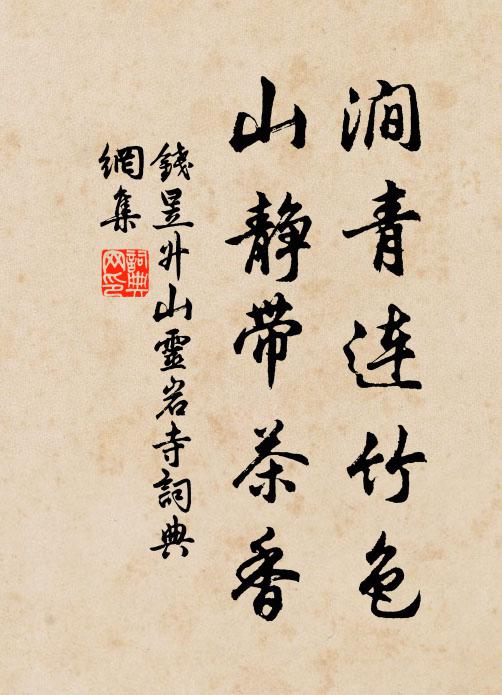 涧青连竹色
山静带茶香
錢昱升山靈岩寺詞典
網集
詞典
网印